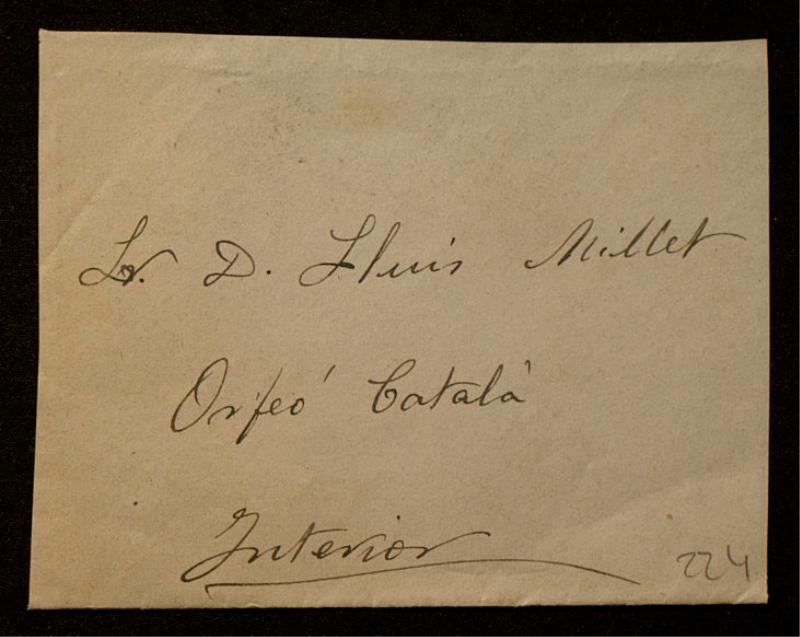 Sr. D. Lluis Millet
Orfeó Català
Interior
224